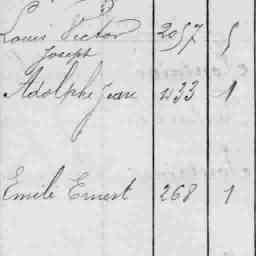 Louis Victor 2057 5
Joseph
Adolphe Jean 433 1
Emile Ernest 268 1